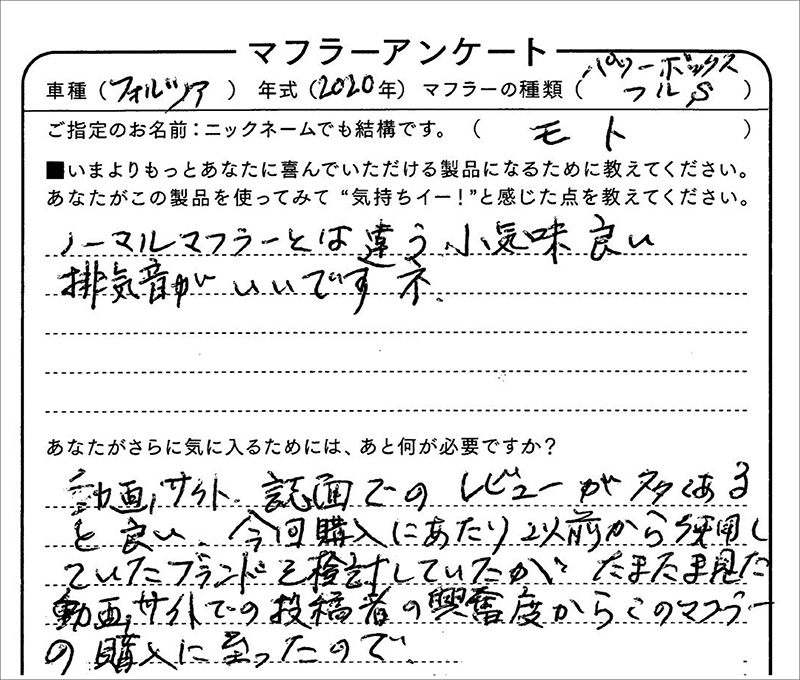 マフラーアンケート
車種（フォルツァ）年式（2020年）マフラーの種類（パワーボックスフルS）
ご指定のお名前：ニックネームでも結構です。（モト）
■いまよりもっとあなたに喜んでいただける製品になるために教えてください。
あなたがこの製品を使ってみて“気持ちイー！”と感じた点を教えてください。
ノーマルマフラーとは違う小気味良い
排気音がいいですネ。
あなたがさらに気に入るためには、あと何が必要ですか？
動画サイト、誌面でのレビューが多くある
と良い、今回購入にあたり以前から使用し
ていたブランドを検討していたが、たまたま見た
動画サイトでの投稿者の興奮度からこのマフラー
の購入に至ったので、